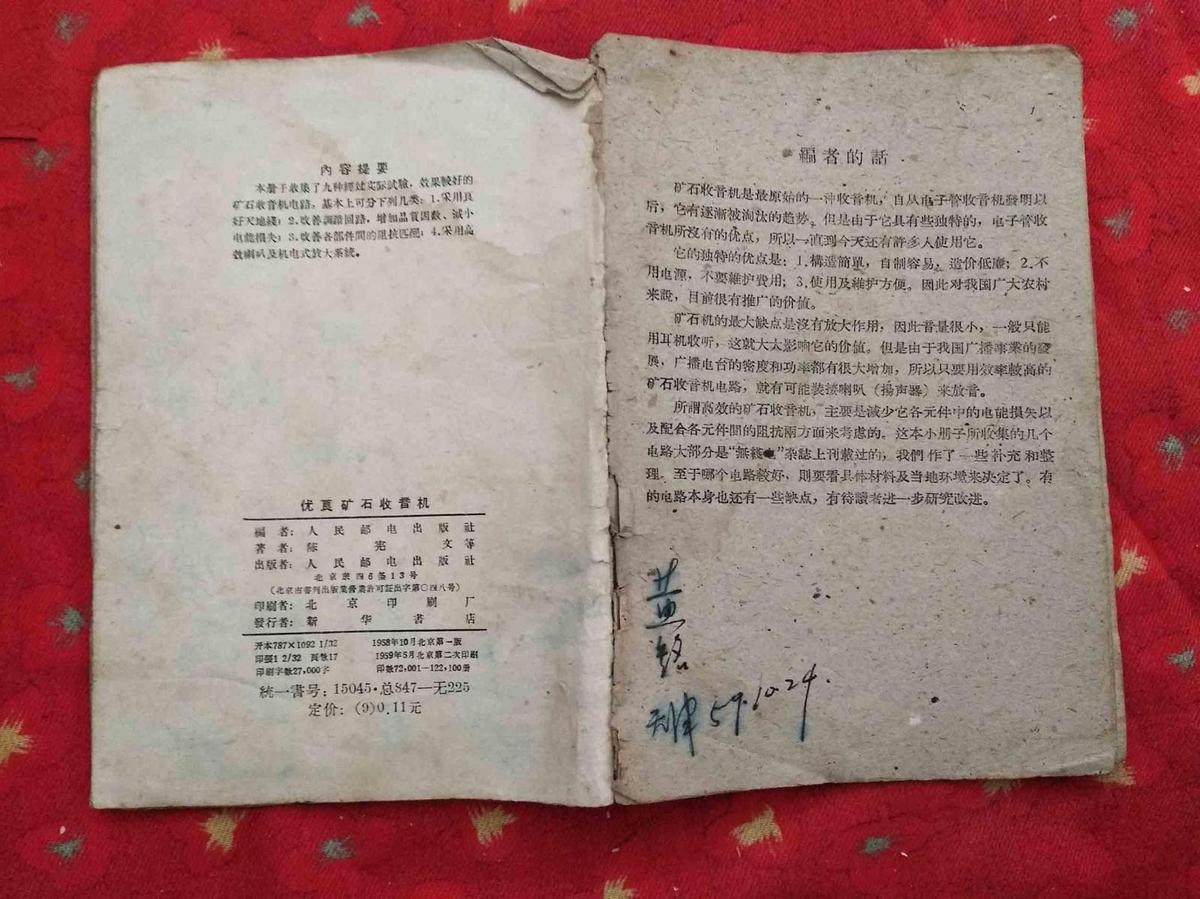 內容提要
本册于收集了九种經过实际試驗，效果較好的
矿石收音机电路。基本上可分下列几类：1.采用良
好天地綫；2.改善調諧回路，增加品質因数、減小
电能損失；3.改善各部件間的阻抗匹配；4.采用高
效喇叭及机电式放大系統。
优良矿石收音机
編者：人民邮电出版社
著者：陈宪文等
出版者：人民邮电出版社
北京東四6条13号
（北京市書刊出版業營業許可証出字第〇四八号）
印刷者：北京印刷厂
發行者：新华書店
开本787×1092 1/32 1958年10月北京第一版
印張1 2/32 頁数17 1959年5月北京第二次印刷
印刷字数27,000字 印数72,001—122,100册
統一書号：15045·总847—无225
定价：(9)0.11元
1
編者的話
矿石收音机是最原始的一种收音机，自从电子管收音机發明以
后，它有逐漸被淘汰的趋势。但是由于它具有些独特的，电子管收
音机所沒有的优点，所以一直到今天还有許多人使用它。
它的独特的优点是：1.構造簡單，自制容易，造价低廉；2.不
用电源，不要維护費用；3.使用及維护方便。因此对我国广大农村
来說，目前很有推广的价値。
矿石机的最大缺点是沒有放大作用，因此音量很小，一般只能
用耳机收听，这就大大影响它的价値。但是由于我国广播事業的發
展，广播电台的密度和功率都有很大增加，所以只要用效率較高的
矿石收音机电路，就有可能装接喇叭（揚声器）来放音。
所謂高效的矿石收音机，主要是減少它各元件中的电能損失以
及配合各元件間的阻抗兩方面来考慮的。这本小册子所收集的几个
电路大部分是“無綫电”杂誌上刊載过的，我們作了一些补充和整
理。至于哪个电路較好，則要看具体材料及当地环境来决定了。有
的电路本身也还有一些缺点，有待讀者进一步研究改进。
黄
铭
天津 59.10.24.